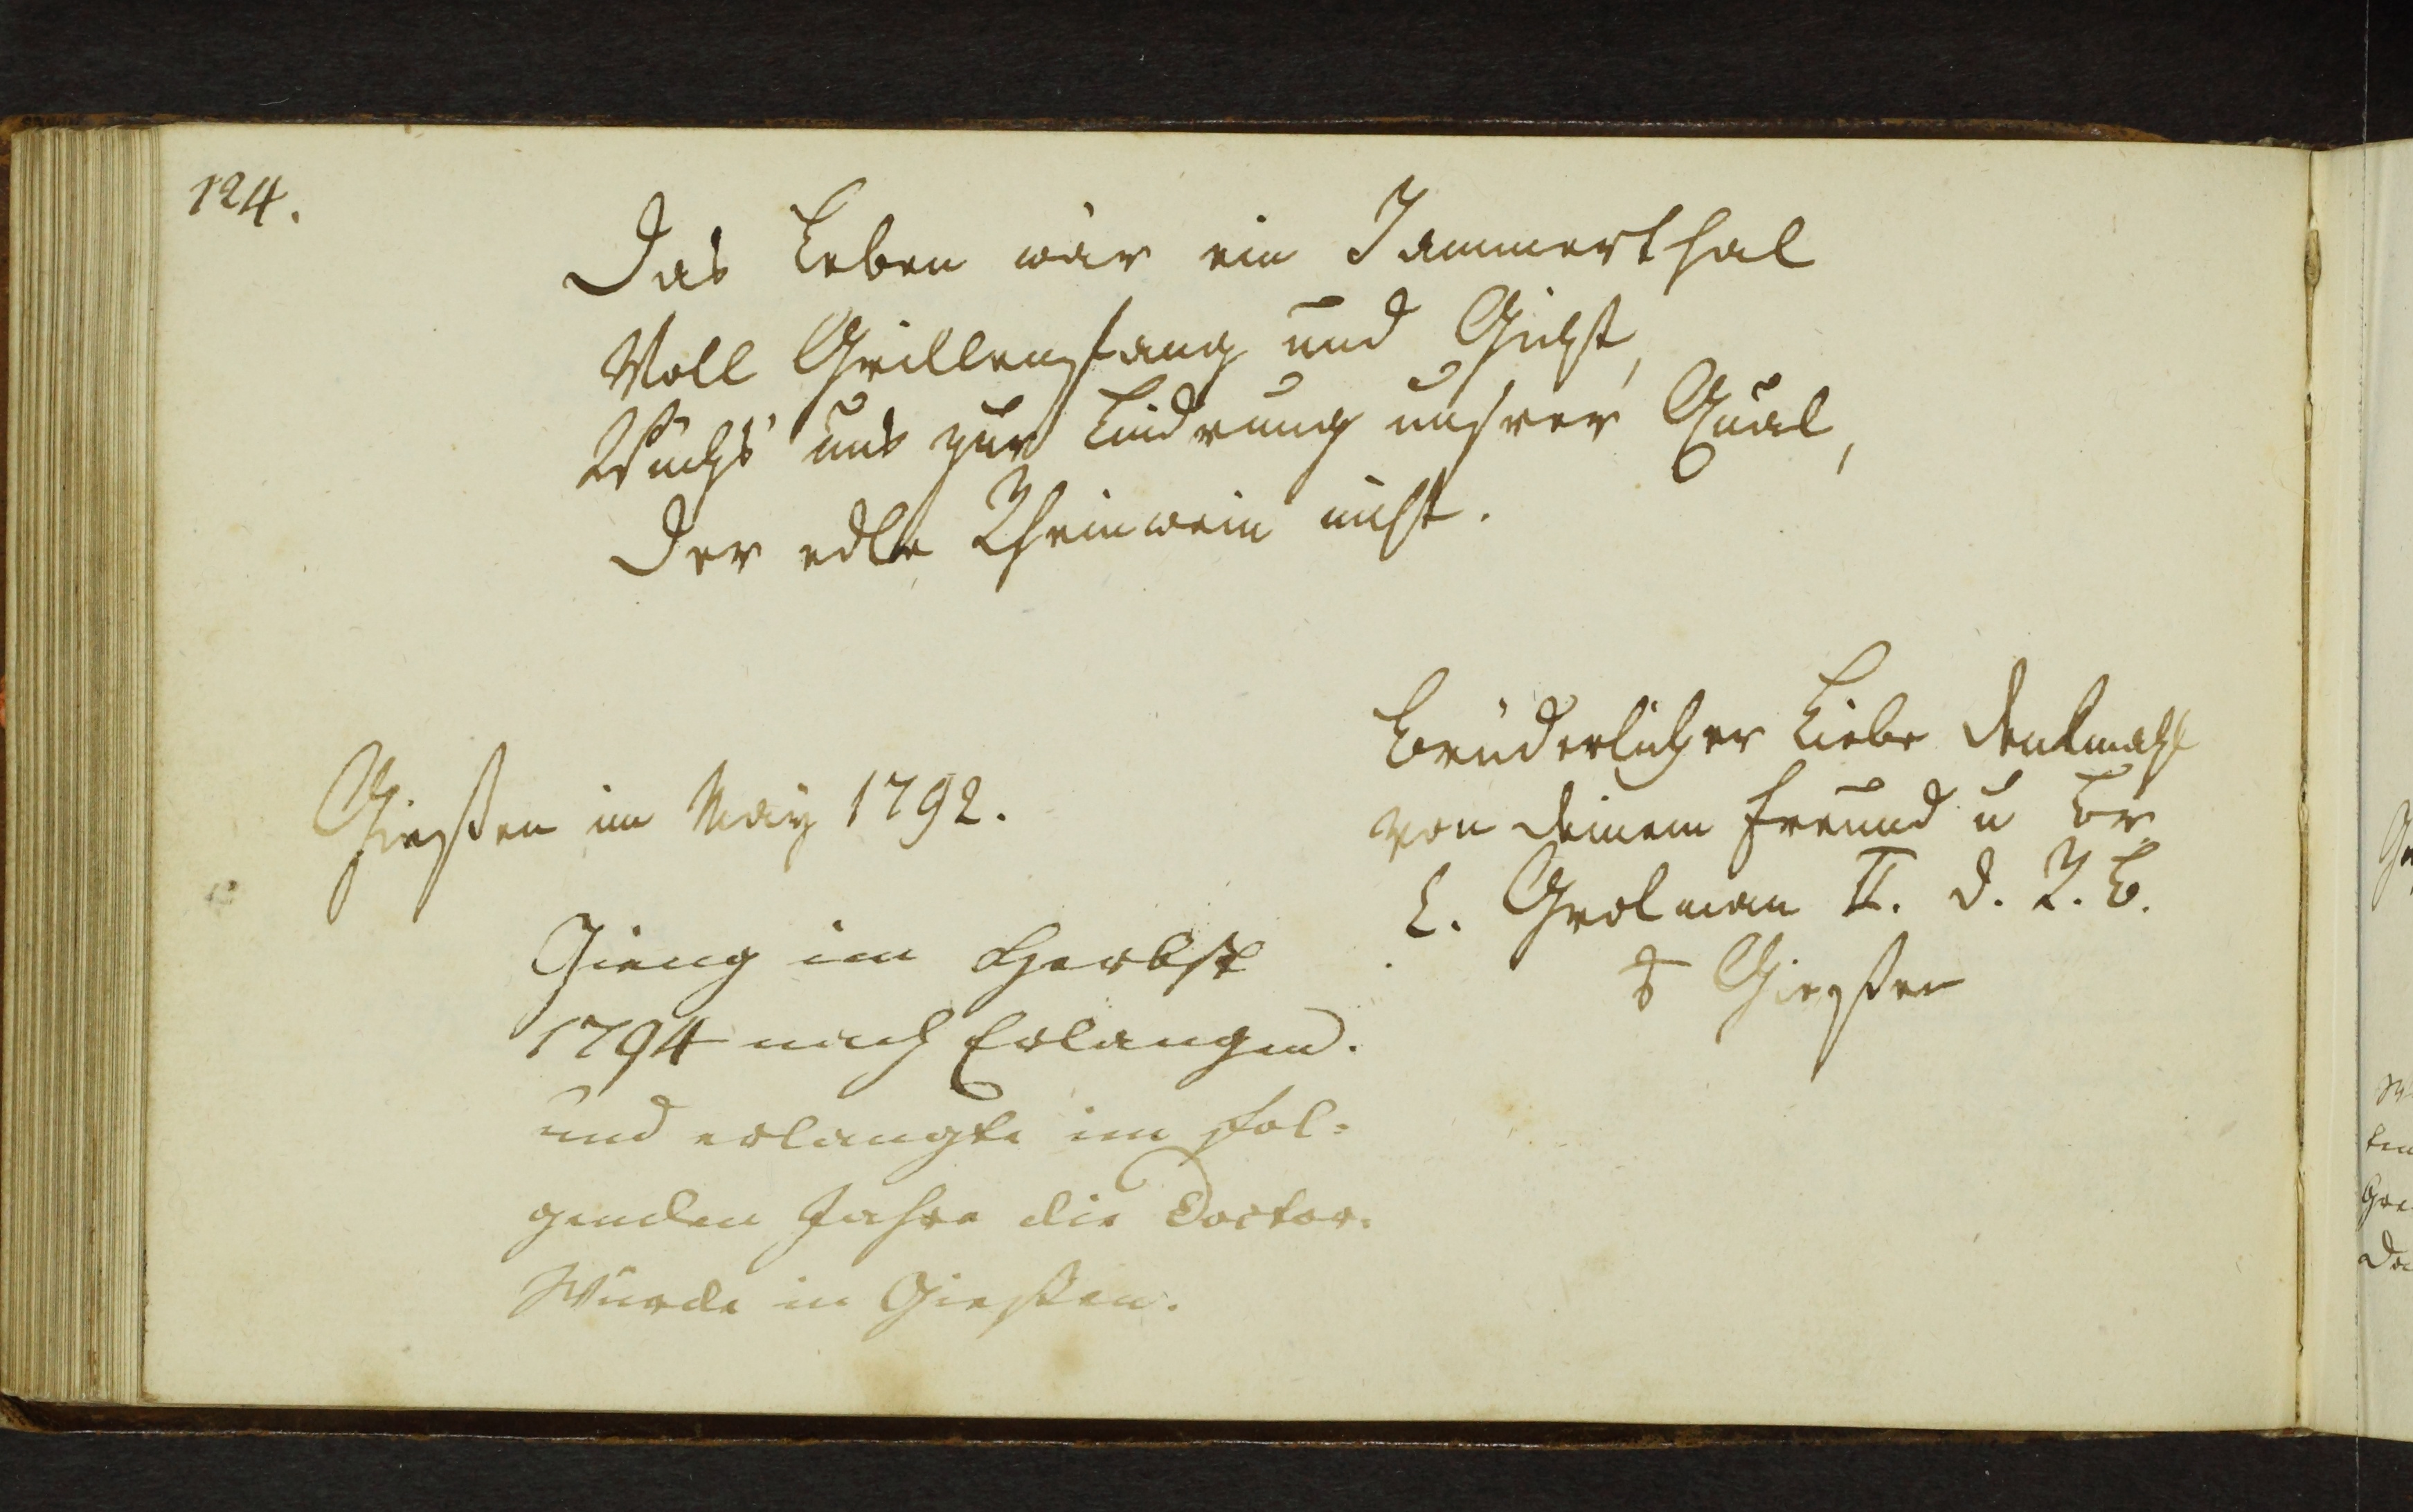 124.
Das Leben wär ein Jammerthal
Voll Grillenfang und Gicht,
Wüchs' uns zur Lindrung unsrer Qual,
Der edle Rheinwein nicht.
Brüderlicher Liebe Denkmahl
von deinem Freund u Br.
L. Grolman II. d. R. B.
Giessen im May 1792.
Giessen
Gieng im Herbst
1794 nach Erlangen.
und erlangte im fol-
genden Jahre die Doctor-
Würde in Giessen.